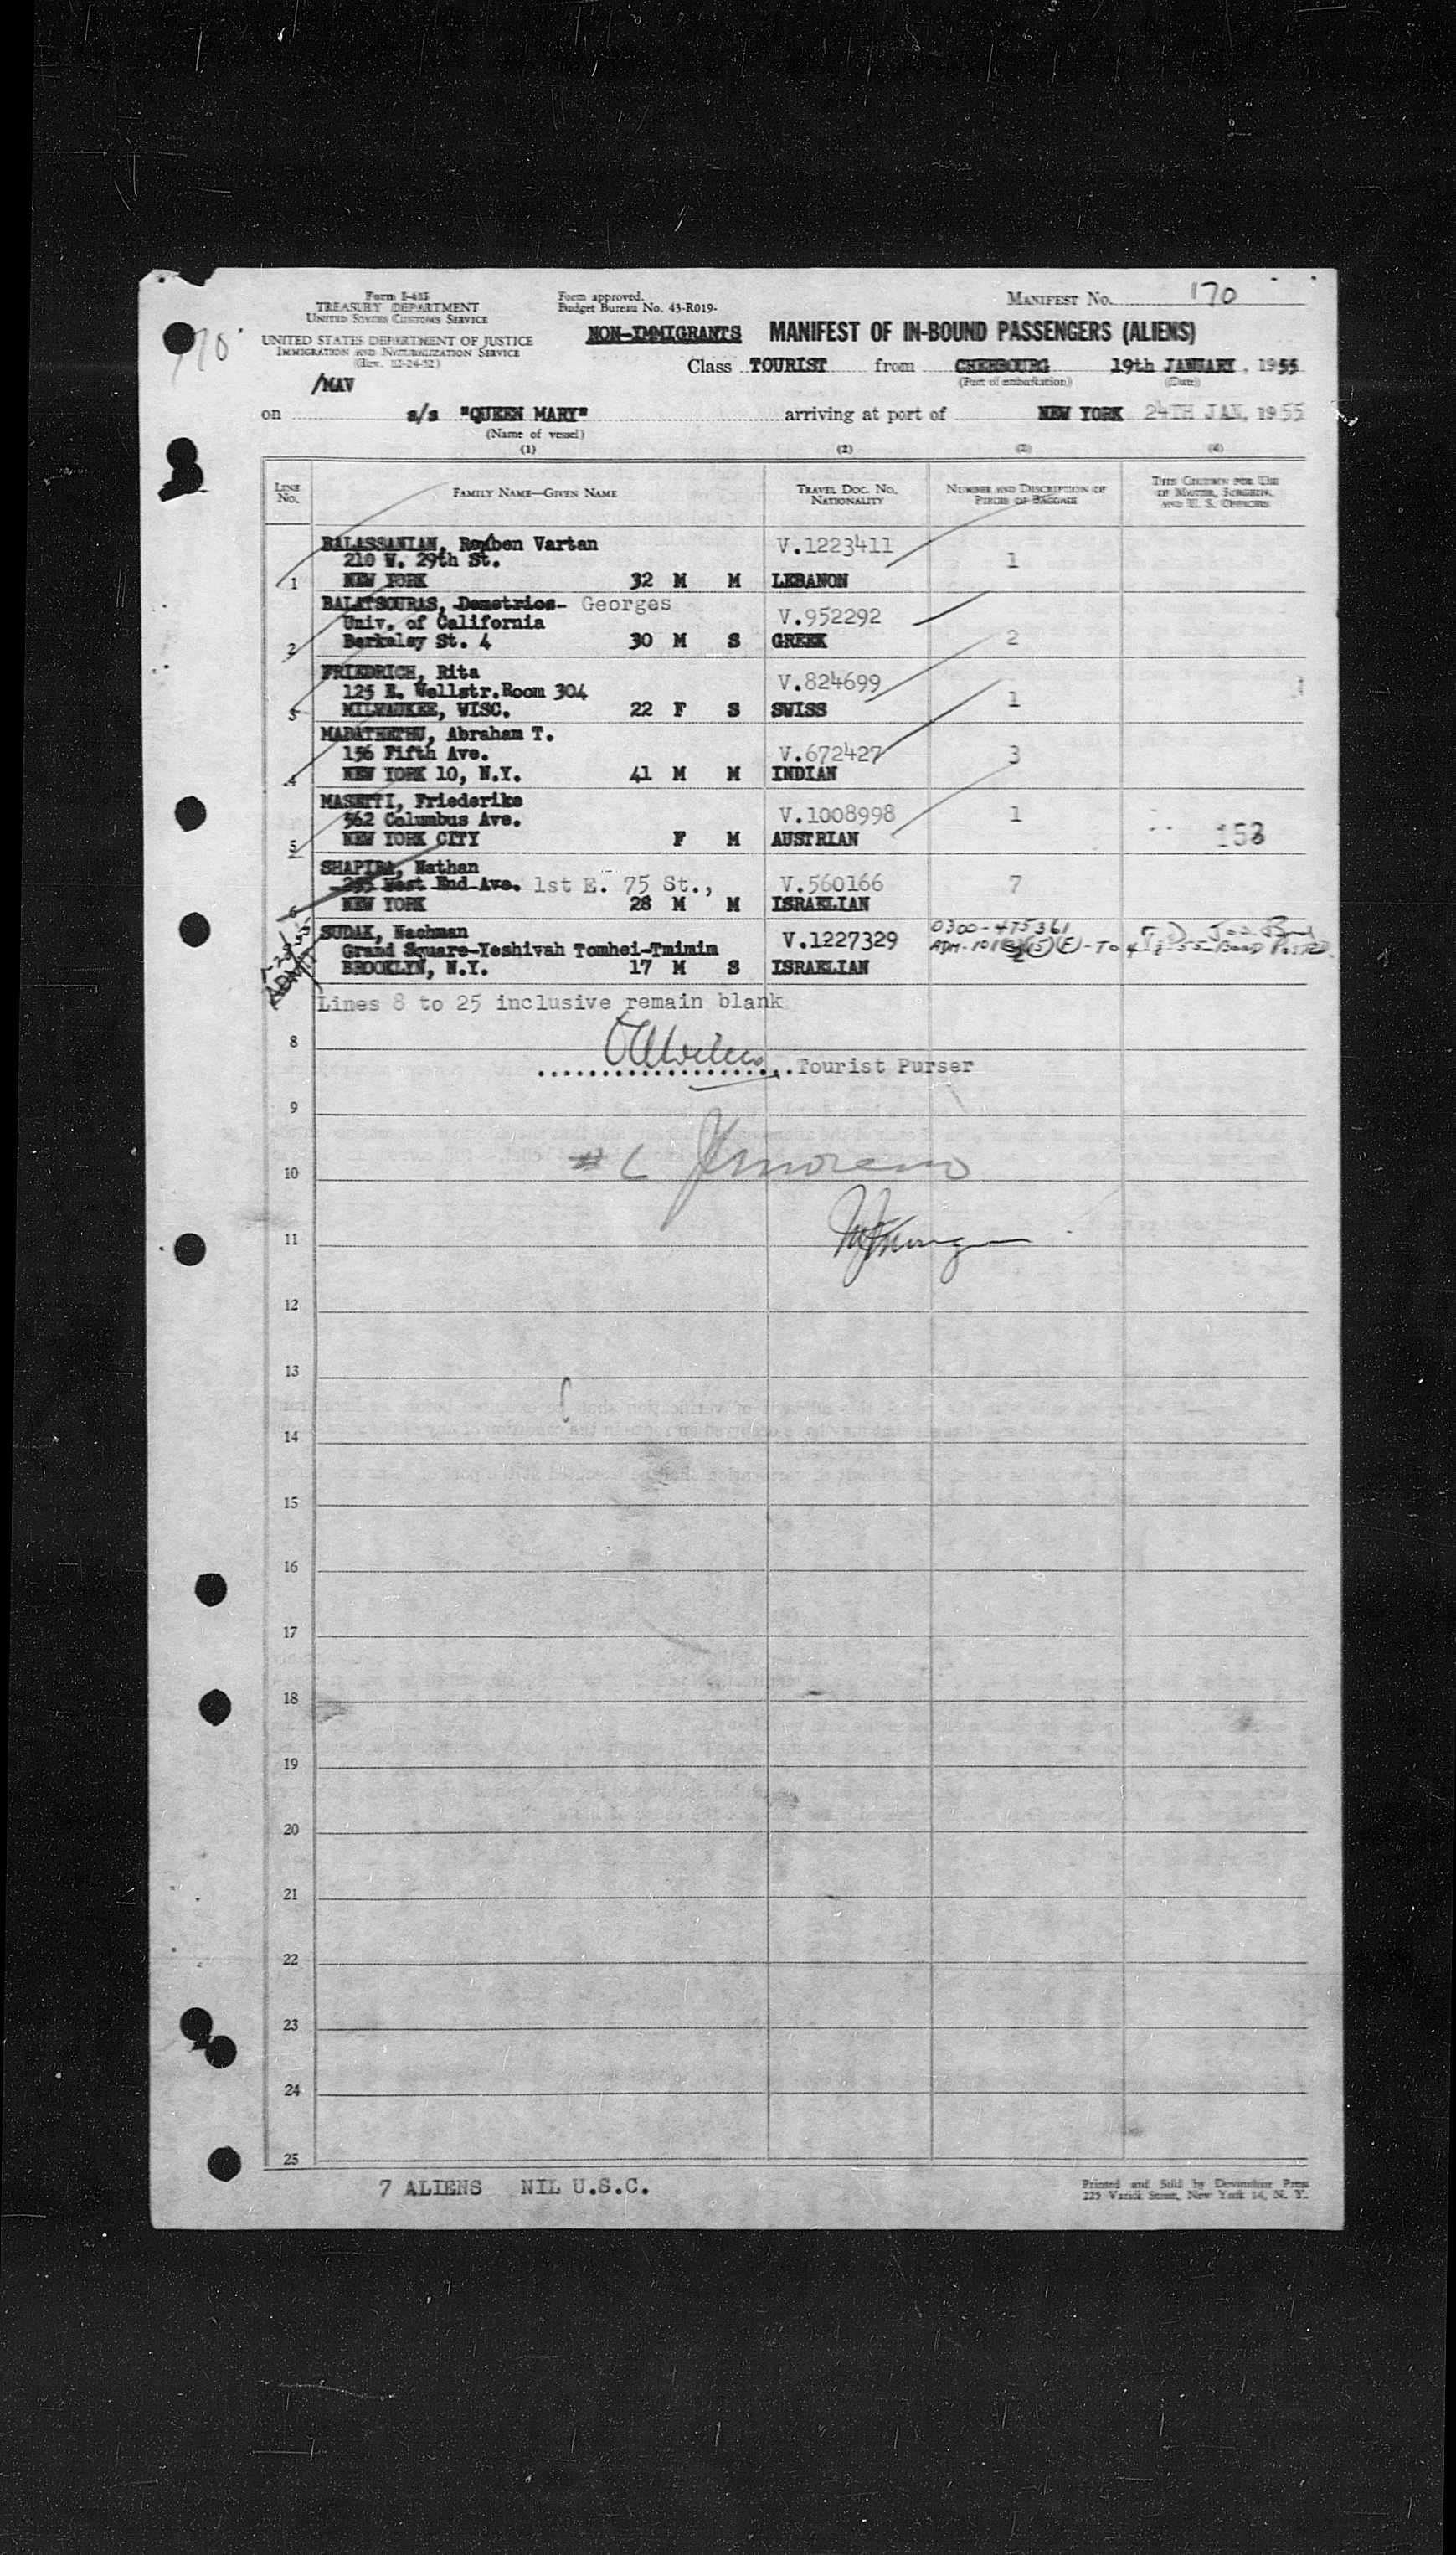 Form I-415
TREASURY DEPARTMENT
UNITED STATES CUSTOMS SERVICE
UNITED STATES DEPARTMENT OF JUSTICE
IMMIGRATION AND NATURALIZATION SERVICE
(Rev. 12-24-52)
Form approved.
Budget Bureau No. 43-R019-
MANIFEST NO. 170
NON-IMMIGRANTS MANIFEST OF IN-BOUND PASSENGERS (ALIENS)
Class TOURIST from CHERBOURG 19th JANUARY, 1955
(Port of embarkation) (Date)
/MAV
on s/s "QUEEN MARY" arriving at port of NEW YORK 24TH JAN, 1955
(Name of vessel)
(1) (2) (3) (4)
LINE NO. FAMILY NAME—GIVEN NAME TRAVEL DOC. NO. NATIONALITY NUMBER AND DESCRIPTION OF PIECES OF BAGGAGE THIS COLUMN FOR USE OF MASTER, SURGEON, AND U. S. OFFICERS
BALASSANIAN, Rouben Vartan V.1223411
210 W. 29th St. 1
1 NEW YORK 32 M M LEBANON
BALATSOURAS, Demetrios- Georges V.952292
Univ. of California 2
2 Berkeley St. 4 30 M S GREEK
FRIEDRICH, Rita V.824699
125 E. Wellstr.Room 304 1
3 MILWAUKEE, WISC. 22 F S SWISS
MARATHETHU, Abraham T.
156 Fifth Ave. V.672427 3
4 NEW YORK 10, N.Y. 41 M M INDIAN
MASETTI, Friederike
562 Columbus Ave. V.1008998 1
5 NEW YORK CITY F M AUSTRIAN 153
SHAPIRA, Nathan
255 West End Ave. 1st E. 75 St., V.560166 7
6 NEW YORK 28 M M ISRAELIAN
SUDAK, Nachman 0300-475361
Grand Square-Yeshivah Tomhei-Tmimim V.1227329 BOND POSTED
BROOKLYN, N.Y. 17 M S ISRAELIAN
Lines 8 to 25 inclusive remain blank
8
Tourist Purser
9
10
11
12
13
14
15
16
17
18
19
20
21
22
23
24
25
7 ALIENS NIL U.S.C.
Printed and Sold by Devonshire Press
225 Varick Street, New York 14, N. Y.